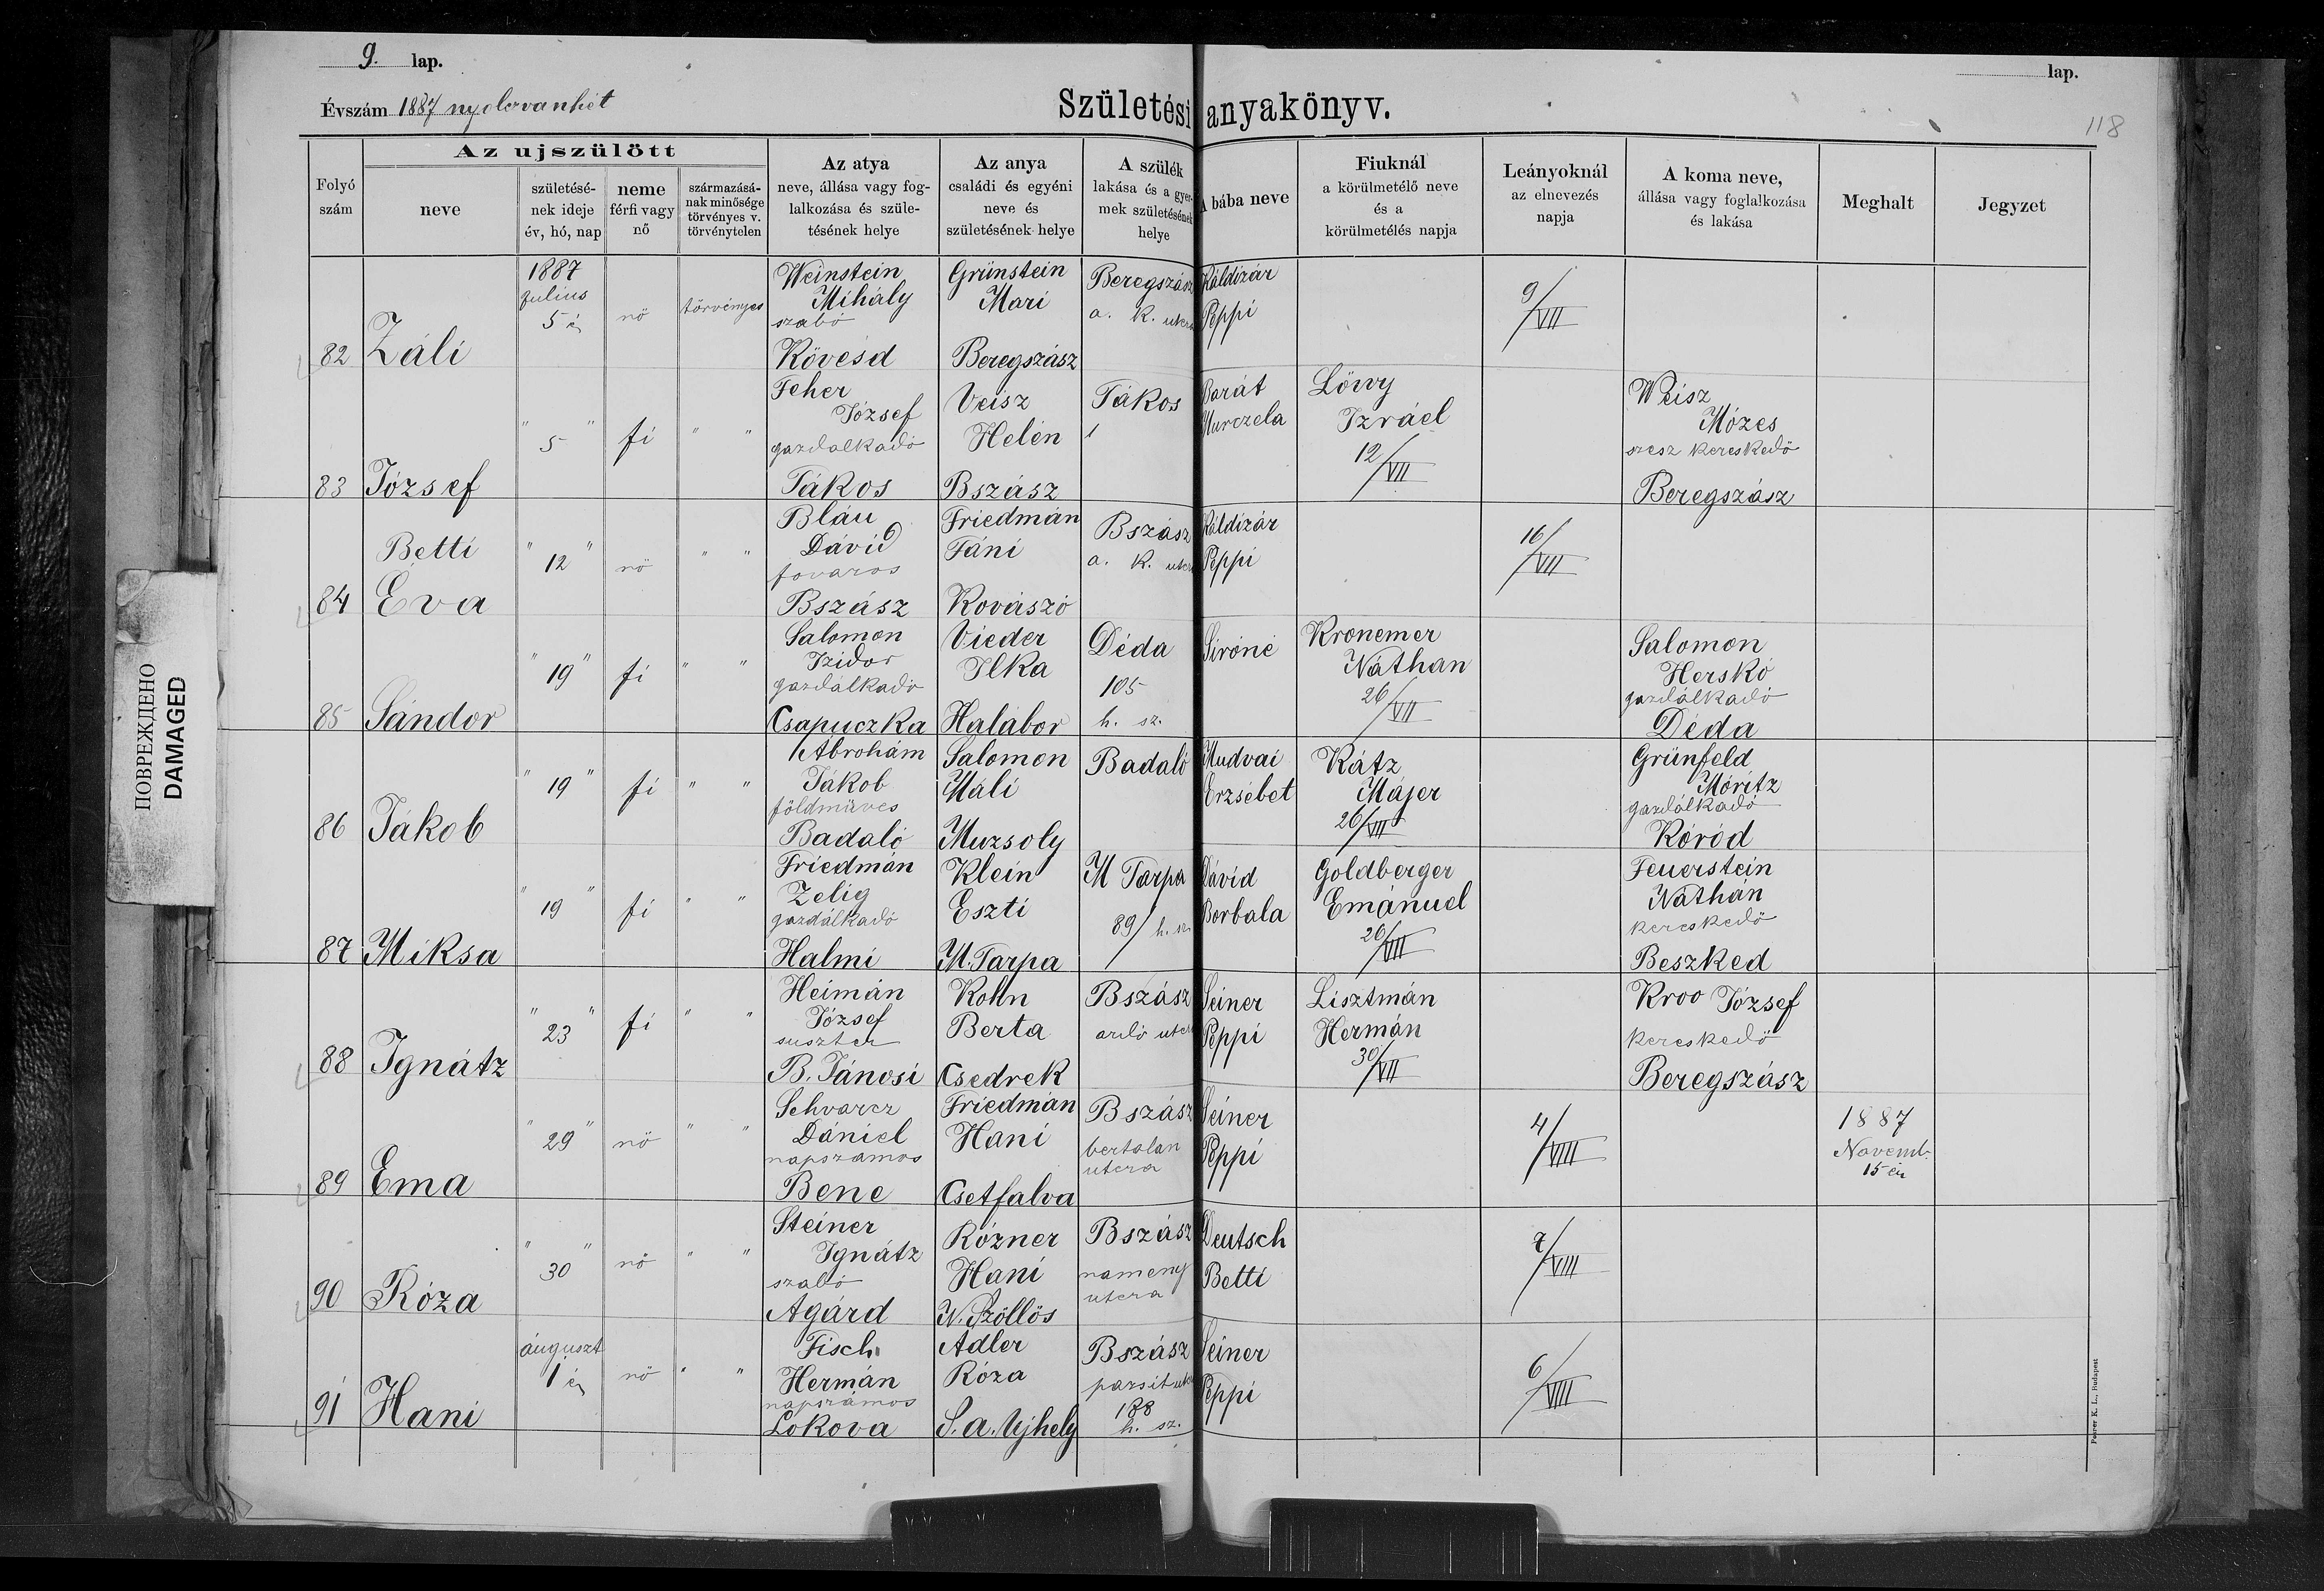 9. lap.
lap.
Évszám 1887 nyolcvanhét
Születési anyakönyv.
118
Folyó szám
Az ujszülött
neve
születésének ideje év, hó, nap
neme férfi vagy nő
származásának minősége törvényes v. törvénytelen
Az atya neve, állása vagy foglalkozása és születésének helye
Az anya családi és egyéni neve és születésének helye
A szülék lakása és a gyermek születésének helye
A bába neve
Fiuknál a körülmetélő neve és a körülmetélés napja
Leányoknál az elnevezés napja
A koma neve, állása vagy foglalkozása és lakása
Meghalt
Jegyzet
82 Záli 1887 julius 5 én nő törvényes Weinstein Mihály szabó Kövesd Grünstein Mari Beregszász Beregszász a. K. utcza Káldizár Peppi 9/VII
83 József " 5 " fi " " Feher József gazdalkadó Tákos Veisz Helén Bszász Tákos 1 Barát Murczela Löwy Izráel 12/VII Weisz Mózes szesz kereskedö Beregszász
84 Betti Eva " 12 " nő " " Bláu Dávid fovaros Bszász Friedmán Fáni Kovászó Bszász a. K. utcza Káldizár Peppi 16/VII
85 Sándor " 19 " fi " " Salomon Izidor gazdálkadó Csapuczka Vieder Ilka Halábor Déda 105 h. sz. Siróné Kronemer Náthan 26/VII Salomon Herskó gazdálkadó Déda
86 Jákob " 19 " fi " " Abrohám Jákob földmüves Badaló Salomon Máli Muzsoly Badaló Mudvai Erzsébet Kátz Májer 26/VII Grünfeld Móritz gazdálkadó Kóród
87 Miksa " 19 " fi " " Friedmán Zelig gazdálkadó Halmi Klein Eszti M. Tarpa M Tarpa 89/ h. sz. Dávid Borbala Goldberger Emánuel 26/VII Feuerstein Nathán kereskedö Beszked
88 Ignátz " 23 " fi " " Heimán József suszter B. Jánosi Kohn Berta Csedrek Bszász ardó utcza Seiner Peppi Lisztmán Hermán 30/VII Kroo József kereskedö Beregszász
89 Ema " 29 " nő " " Schvarcz Dániel napszamos Bene Friedmán Hani Csetfalva Bszász bertalan utcza Seiner Peppi 4/VIII 1887 Novemb. 15 én
90 Róza " 30 " nő " " Steiner Ignátz szabó Agárd Rózner Hani N. Szöllös Bszász nameny utcza Deutsch Betti 7/VIII
91 Hani áuguszt 1 én nő " " Fisch Hermán napszámos Lokova Adler Róza S. a. Ujhely Bszász 188 h. sz. Seiner Peppi 6/VIII
ПОВРЕЖДЕНО
DAMAGED
K. L., Budapest